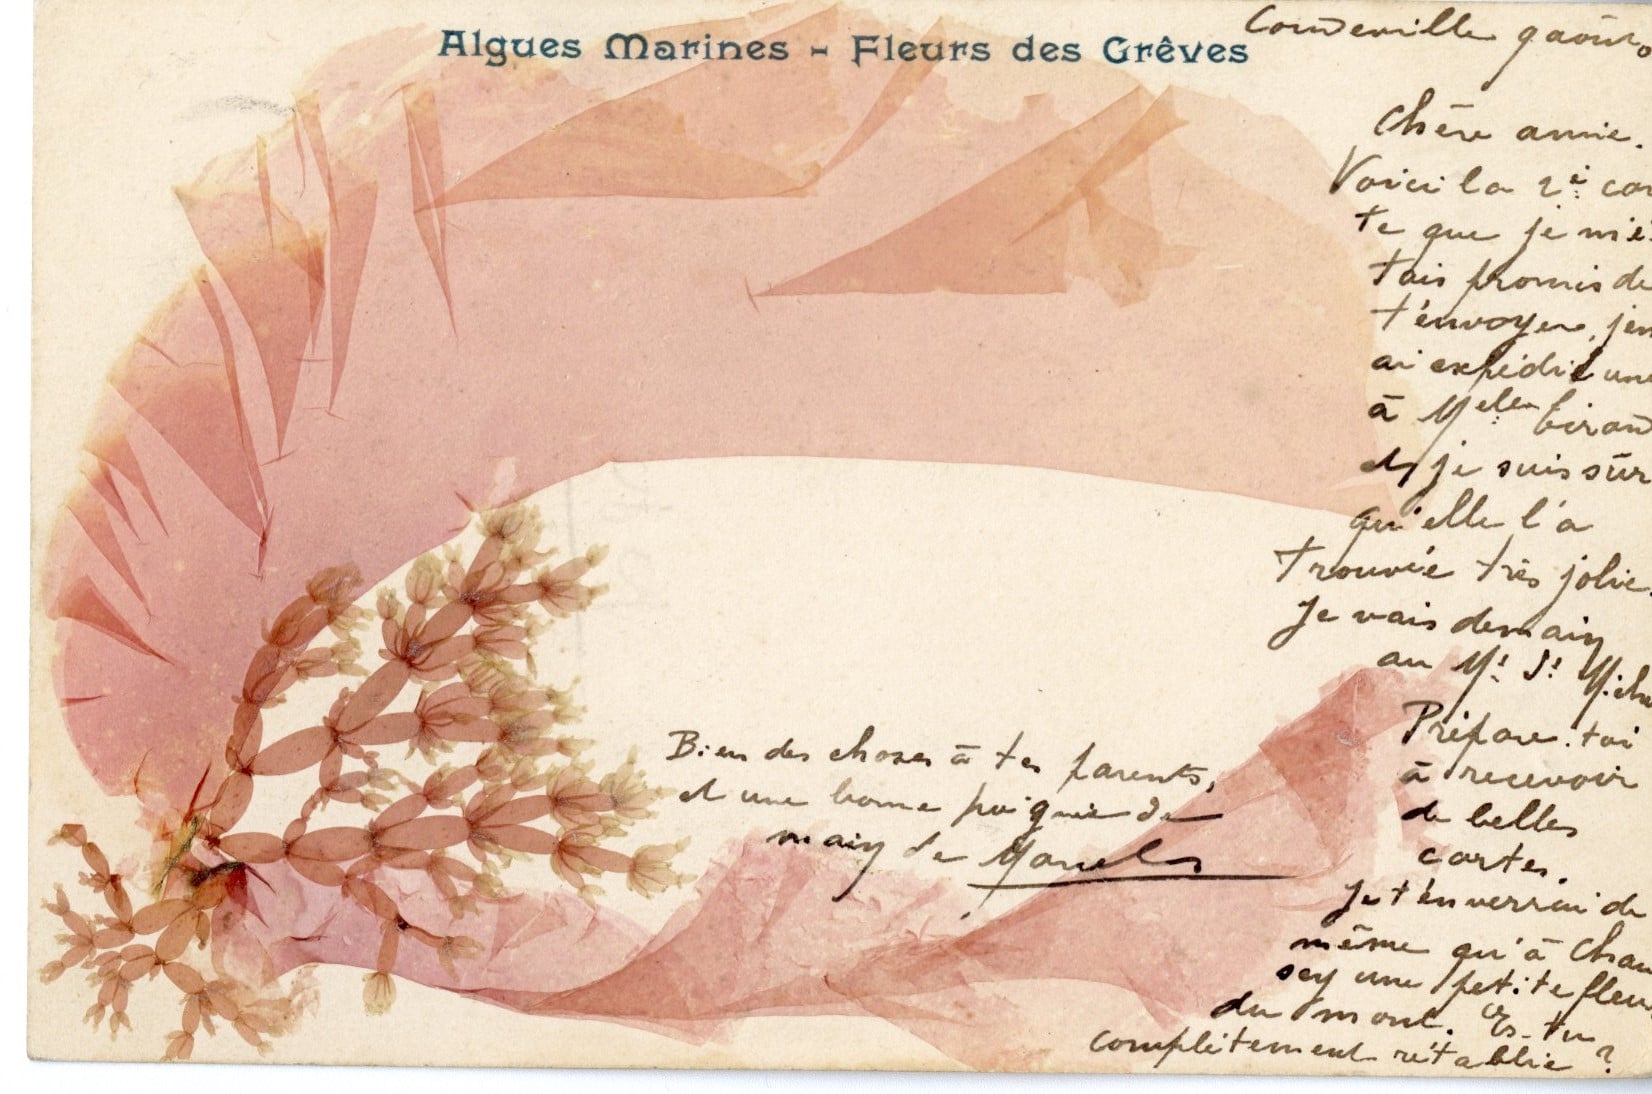 Algues Marines - Fleurs des Grèves
Coudeville 9 août
Chère amie.
Voici la 2e car
te que je m'é
tais promis de
t'envoyer, j'en
ai expédié une
à Melle
et je suis sûr
qu'elle l'a
trouvée très jolie.
Je vais demain
au Mt St Miche
Prépare-toi
à recevoir
de belles
cartes.
Je t'enverrai de
même qu'à Chau
sey une petite fleur
du mont. Es-tu
complètement rétablie ?
Bien des choses à tes parents,
et une bonne poignée de
main de